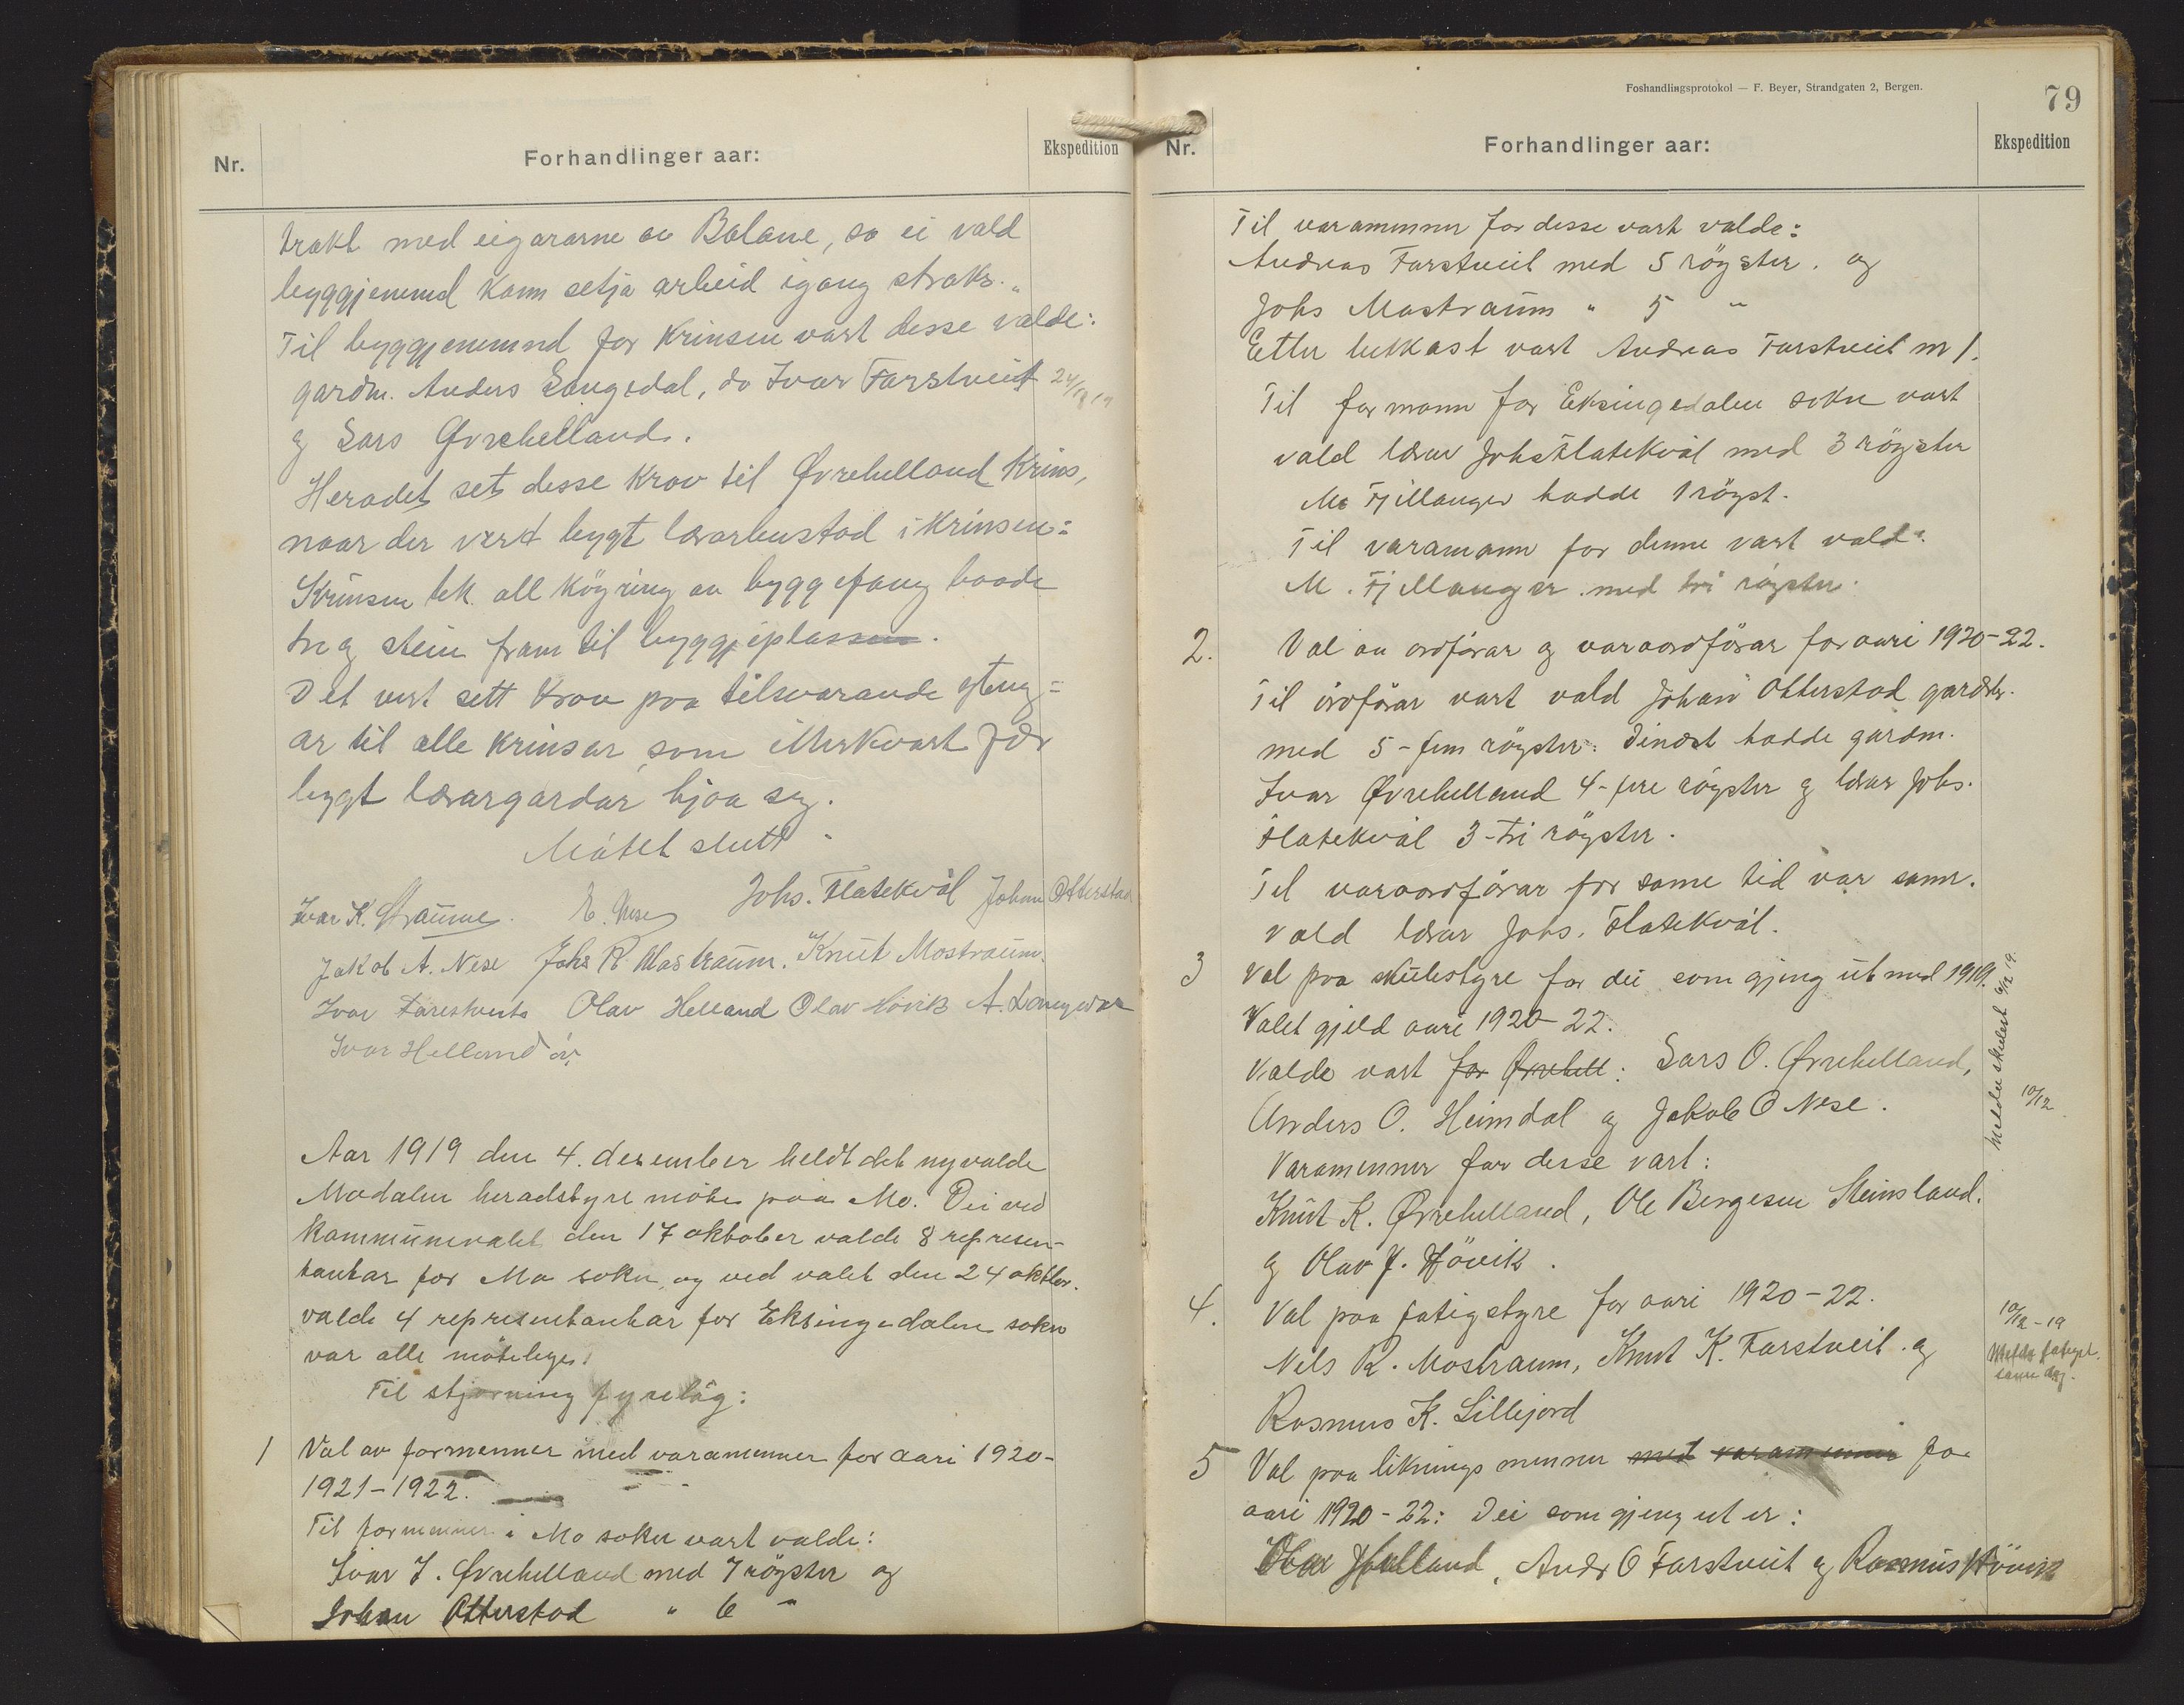 Nr.
Forhandlinger aar:
Ekspedition
trakt med eigararne av Bolane, so ei vald
byggjenemnd kann setja arbeid igang straks.„
Til byggjenemnd for krinsen vart desse valde:
gardm. Anders Langedal, do Ivar Farstveit
og Lars Øvrehelland.
Heradet set desse krav til Øvrehelland Krins,
naar der vert bygt lærarbustad i Krinsen:
Krinsen tek all köyring av byggefang baade
tre og stein fram til byggjeplassen.
Det vert sett krav paa tilsvarande
ar til alle krinsar, som
bygt lærargardar hjaa seg.
Mötet slutt.
Ivar K. Straume. E. Nese Johs. Flatekvål Johan Otterstad
Jakob A. Nese Johs R. Mostraum. Knut Mostraum.
Ivar Farestveit Olav Helland Olav Hövik A. Langedal
Ivar Helland
Aar 1919 den 4. desember heldt det nyvalde
Modalen heradstyre möte paa Mo. Dei ved
kommunevalet den 17 oktober valde 8 represen-
tantar for Mo sokn og ved valet den 24 oktbr.
valde 4 representantar for Eksingedalen sokn
var alle möteleges.
Til styrning fyrelåg:
1 Val av formenner med varamenner for aari 1920-
1921-1922.
Til formenner i Mo sokn vart valde:
Ivar J. Øvrehelland med 7 röyster og
Johan Otterstad " 6 "
Foshandlingsprotokol — F. Beyer, Strandgaten 2, Bergen.
79
Nr.
Forhandlinger aar:
Ekspedition
Til varamenner for desse vart valde:
Andreas Farstveit med 5 röyster. og
Johs Mostraum " 5 "
Etter lutkast vart Andreas Farstveit nr 1.
Til formann for Eksingedalen sokn vart
vald lærar Johs Flatekvål med 3 röyster
M. Fjellanger hadde 1 röyst.
Til varamann for denne vart vald:
M. Fjellanger med tri röyster.
2. Val av ordförar og varaordförar for aari 1920-22.
Til ordförar vart vald Johan Otterstad gardbr.
med 5-fem röyster. Dinæst hadde gardm.
Ivar Øvrehelland 4-fire röyster og lærar Johs.
Flatekvål 3-tri röyster.
Til varaordförar for same tid var sam.
vald lærar Johs. Flatekvål.
3 Val paa skulestyre for dei som gjeng ut med 1919.
Valet gjeld aari 1920-22.
Valde vart for Øvrehell: Lars O. Øvrehelland,
Anders O. Heimdal og Jakob O Nese.
Melden skulest 6/12 19.
10/12
Varamenner for desse vart:
Knut K. Øvrehelland, Ole Bergesen Steinsland.
og Olav J. Hövik.
4. Val paa fatigstyre for aari 1920-22.
10/12-19
Nels R. Mostraum, Knut K. Farstveit. og
same dag.
Rasmus K. Lillejord
5 Val paa liknings menner med varamenner for
aari 1920-22: Dei som gjeng ut er:
Olav Helland, Andr O Farstveit og Rasmus Hövik